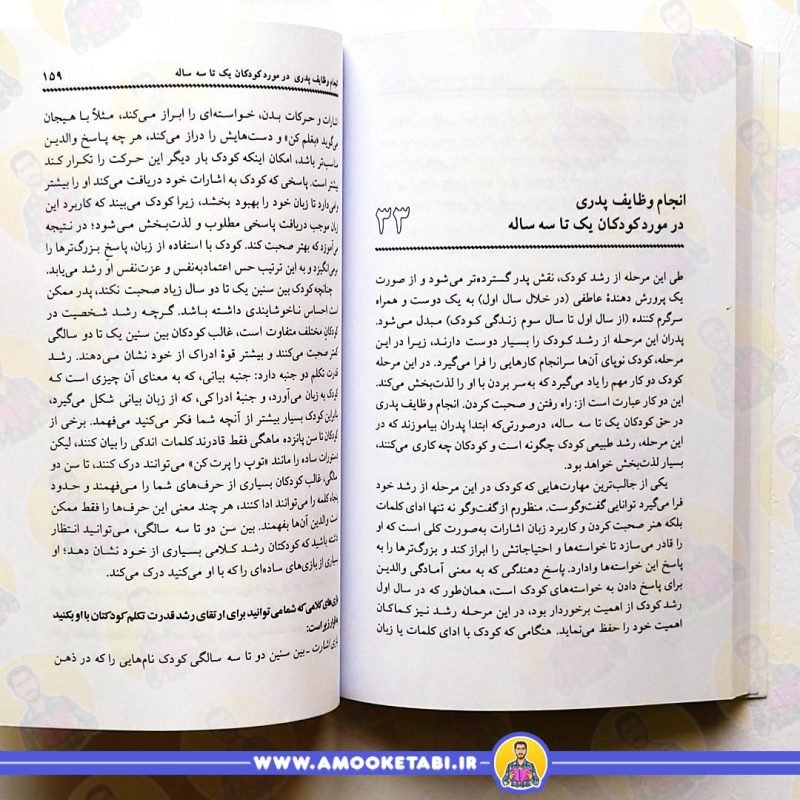 انجام وظایف پدری
در مورد کودکان یک تا سه ساله
۳۳
طی این مرحله از رشد کودک، نقش پدر گسترده‌تر می‌شود و از صورت
یک پرورش دهندهٔ عاطفی (در خلال سال اول) به یک دوست و همراه
سرگرم کننده (از سال اول تا سال سوم زندگی کودک) مبدل می‌شود.
پدران این مرحله از رشد کودک را بسیار دوست دارند، زیرا در این
مرحله، کودک نوپای آن‌ها سرانجام کارهایی را فرا می‌گیرد. در این مرحله
کودک دو کار مهم را یاد می‌گیرد که به‌سر بردن با او را لذت‌بخش می‌کند.
این دو کار عبارت است از: راه رفتن و صحبت کردن. انجام وظایف پدری
در حق کودکان یک تا سه ساله، درصورتی‌که ابتدا پدران بیاموزند که در
این مرحله، رشد طبیعی کودک چگونه است و کودکان چه کاری می‌کنند،
بسیار لذت‌بخش خواهد بود.
یکی از جالب‌ترین مهارت‌هایی که کودک در این مرحله از رشد خود
فرا می‌گیرد توانایی گفت‌وگوست. منظورم از گفت‌وگو نه تنها ادای کلمات
بلکه هنر صحبت کردن و کاربرد زبان اشارات به‌صورت کلی است که او
را قادر می‌سازد تا خواسته‌ها و احتیاجاتش را ابراز کند و بزرگ‌ترها را به
پاسخ این خواسته‌ها وادارد. پاسخ دهندگی که به معنی آمادگی والدین
برای پاسخ دادن به خواسته‌های کودک است، همان‌طور که در سال اول
رشد کودک از اهمیت برخوردار بود، در این مرحله رشد نیز کماکان
اهمیت خود را حفظ می‌نماید. هنگامی که کودک با ادای کلمات یا زبان
انجام وظایف پدری در مورد کودکان یک تا سه ساله ۱۵۹
اشارات و حرکات بدن، خواسته‌ای را ابراز می‌کند، مثلاً با هیجان
می‌گوید «بغلم کن» و دست‌هایش را دراز می‌کند، هر چه پاسخ والدین
مناسب‌تر باشد، امکان اینکه کودک بار دیگر این حرکت را تکرار کند
بیشتر است. پاسخی که کودک به اشارات خود دریافت می‌کند او را بیشتر
وامی‌دارد تا زبان خود را بهبود بخشد، زیرا کودک می‌بیند که کاربرد این
زبان موجب دریافت پاسخی مطلوب و لذت‌بخش می‌شود؛ در نتیجه
می‌آموزد که بهتر صحبت کند. کودک با استفاده از زبان، پاسخ بزرگ‌ترها را
برمی‌انگیزد و به این ترتیب حس اعتمادبه‌نفس و عزت‌نفس او رشد می‌یابد.
چنانچه کودک بین سنین یک تا دو سال زیاد صحبت نکند، پدر ممکن
است احساس ناخوشایندی داشته باشد. گرچه رشد شخصیت در
کودکان مختلف متفاوت است، غالب کودکان بین سنین یک تا دو سالگی
کمتر صحبت می‌کنند و بیشتر قوهٔ ادراک از خود نشان می‌دهند. رشد
قدرت تکلم دو جنبه دارد: جنبه بیانی، که به معنای آن چیزی است که
کودک به زبان می‌آورد، و جنبهٔ ادراکی، که از زبان بیانی شکل می‌گیرد،
بنابراین کودک بسیار بیشتر از آنچه شما فکر می‌کنید می‌فهمد. برخی از
کودکان تا سن پانزده ماهگی فقط قادرند کلمات اندکی را بیان کنند، لیکن
دستورات ساده را مانند «توپ را پرت کن» می‌توانند درک کنند، تا سن دو
سالگی، غالب کودکان بسیاری از حرف‌های شما را می‌فهمند و حدود
پنجاه کلمه را می‌توانند ادا کنند، هر چند معنی این حرف‌ها را فقط ممکن
است والدین آن‌ها بفهمند. بین سن دو تا سه سالگی، می‌توانید انتظار
داشته باشید که کودکتان رشد کلامی بسیاری از خود نشان دهد؛ او
بسیاری از بازی‌های ساده‌ای را که با او می‌کنید درک می‌کند.
بازی‌های کلامی که شما می‌توانید برای ارتقای رشد قدرت تکلم کودکتان با او بکنید
به‌قرار زیر است:
بازی اشارت ـ بین سنین دو تا سه سالگی کودک نام‌هایی را که در ذهن
WWW.AMOOKETABI.IR